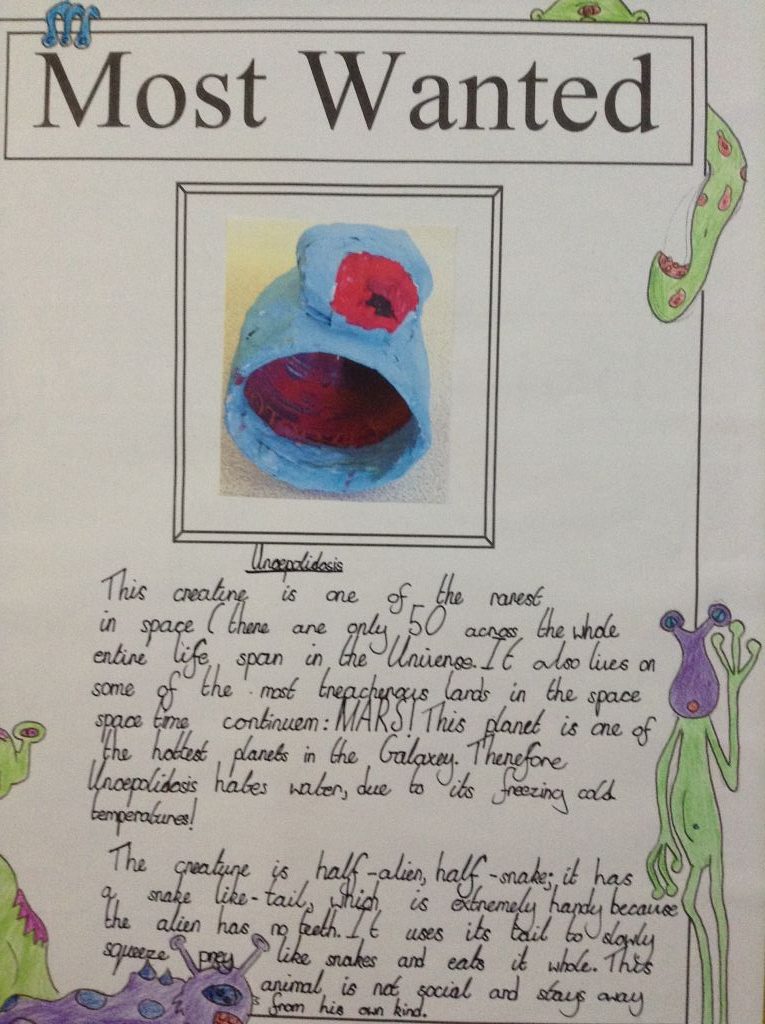 Most Wanted
Uroepolidosis
This creature is one of the rarest
in space (there are only 50 across the whole
entire life span in the Universe. It also lives on
some of the most treacherous lands in the space
space time continuem: MARS! This planet is one of
the hottest planets in the Galaxey. Therefore
Uroepolidosis hates water, due to its freezing cold
temperatures!
The creature is half-alien, half-snake; it has
a snake like-tail, which is extremely handy because
the alien has no teeth. It uses its tail to slowly
squeeze prey like snakes and eats it whole. This
animal is not social and stays away
from his own kind.